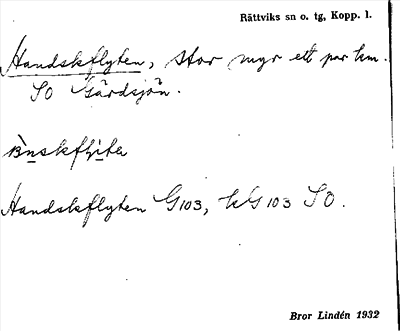 Rättviks sn o. tg, Kopp. l.
Handskflyten, stor myr ett par km.
SO Gårdsjön.
Handskflyten G103, kG103 SO.
Bror Lindén 1932